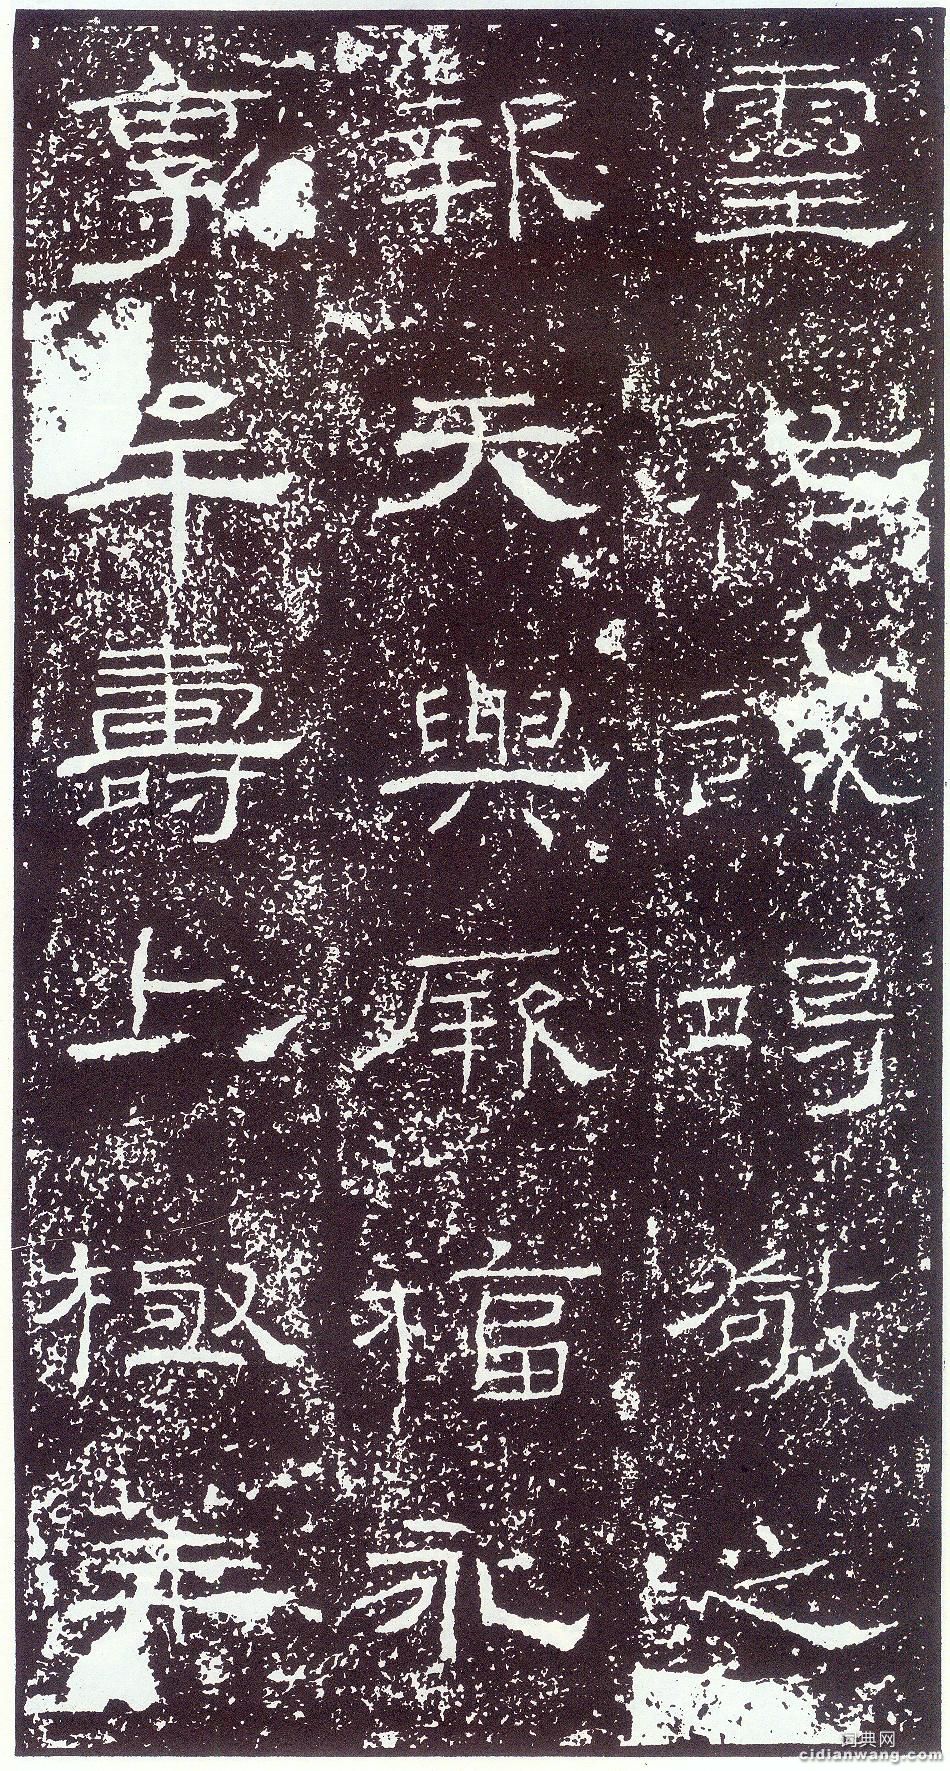 靈祐誠竭敬之
報天與厥福永
享牟壽上極華
词典网
cidianwang.com